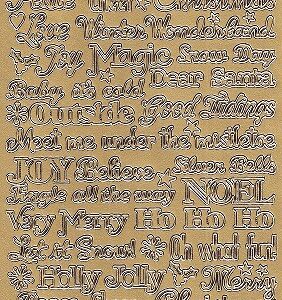 Christmas
Love Winter Wonderland
Joy Magic Snow Day
Dear Santa
Baby it's cold
Outside Good Tidings
Meet me under the mistletoe
JOY Believe Silver Bells
Jingle all the way NOEL
Very Merry Ho Ho Ho
Let it Snow! Oh what fun!
Holly Jolly Merry